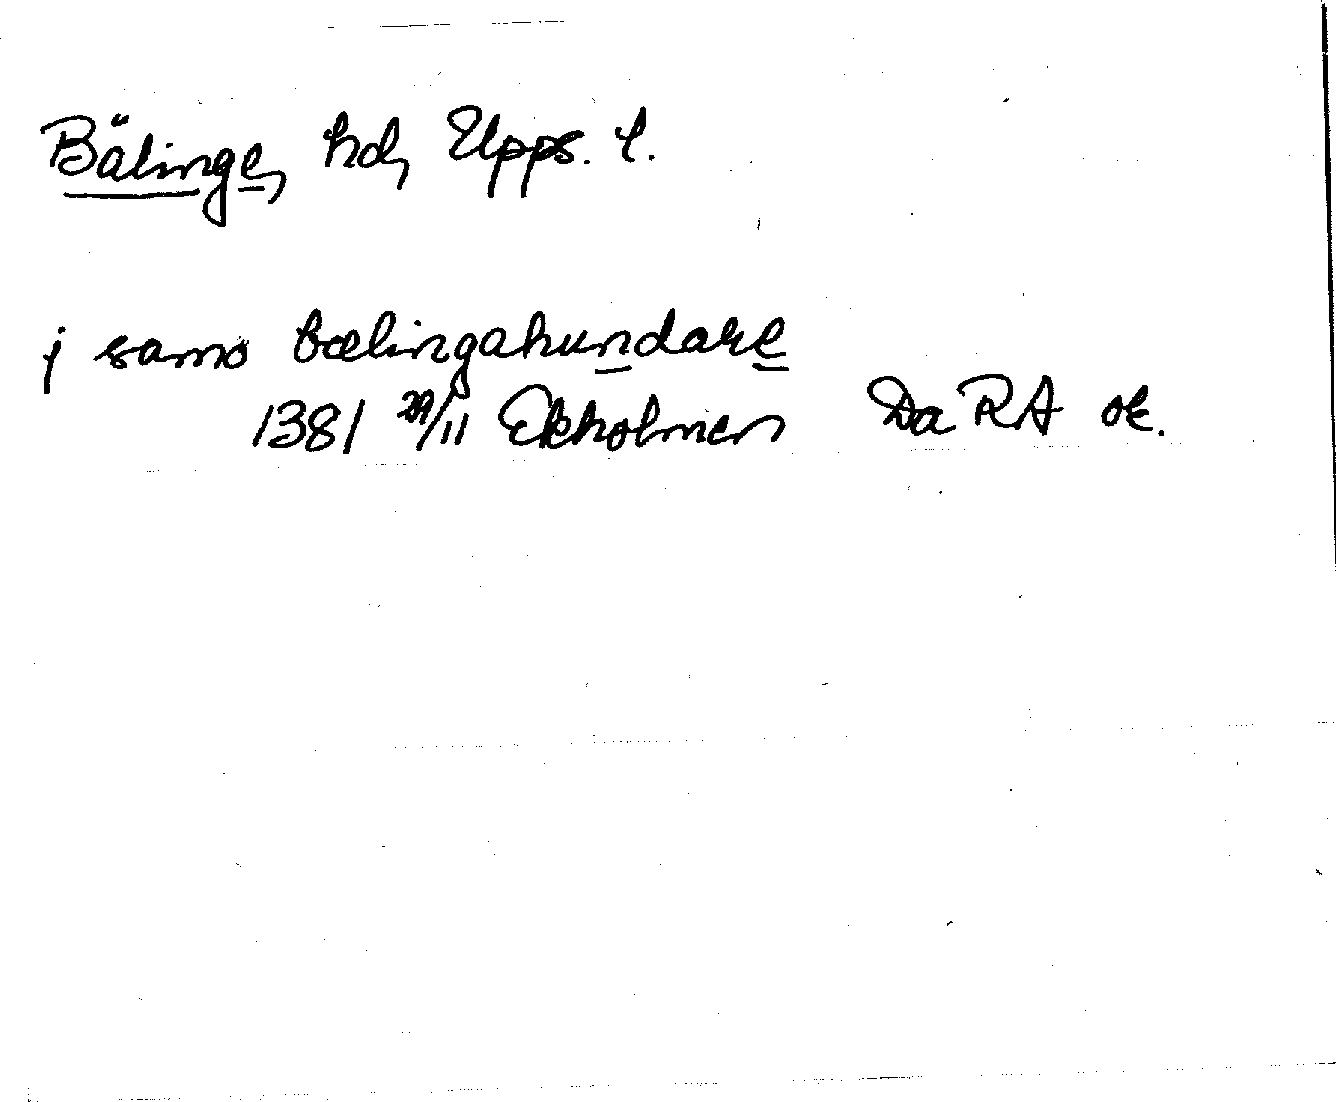 Bälinge, hd, Upps. l.
j samo bælingahundare
1381 29/11 Ekholmen DaRA or.